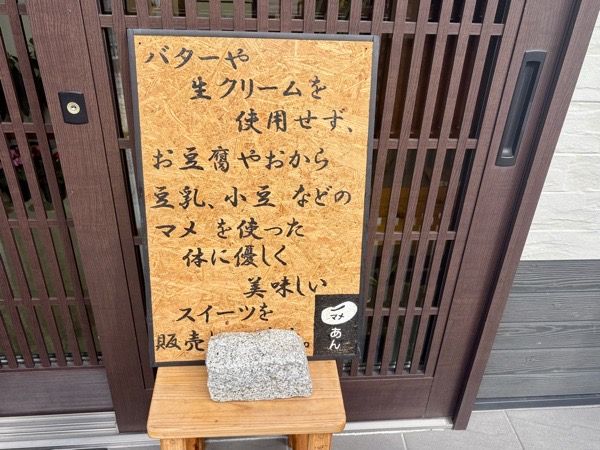 バターや
生クリームを
使用せず、
お豆腐やおから
豆乳、小豆 などの
マメ を使った
体に優しく
美味しい
スイーツを
販売
マメ
あん